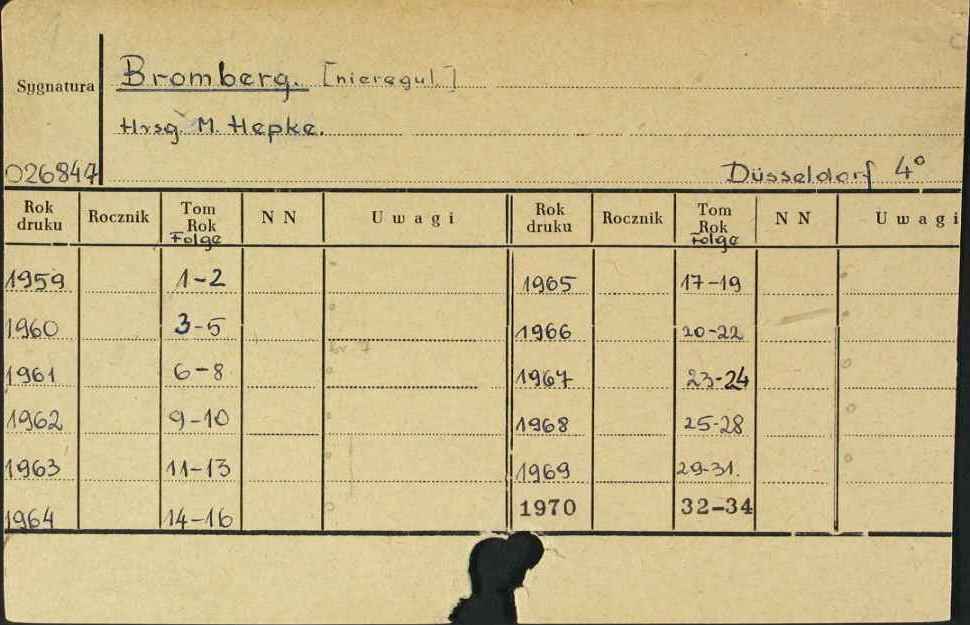 Sygnatura Bromberg. [nieregul.]
Hrsg. M. Hepke.
026847 Düsseldorf 4°
Rok druku Rocznik Tom Rok Folge N N Uwagi Rok druku Rocznik Tom Rok Folge N N Uwagi
1959 1-2 1965 17-19
1960 3-5 1966 20-22
1961 6-8 1967 23-24
1962 9-10 1968 25-28
1963 11-13 1969 29-31.
1964 14-16 1970 32-34